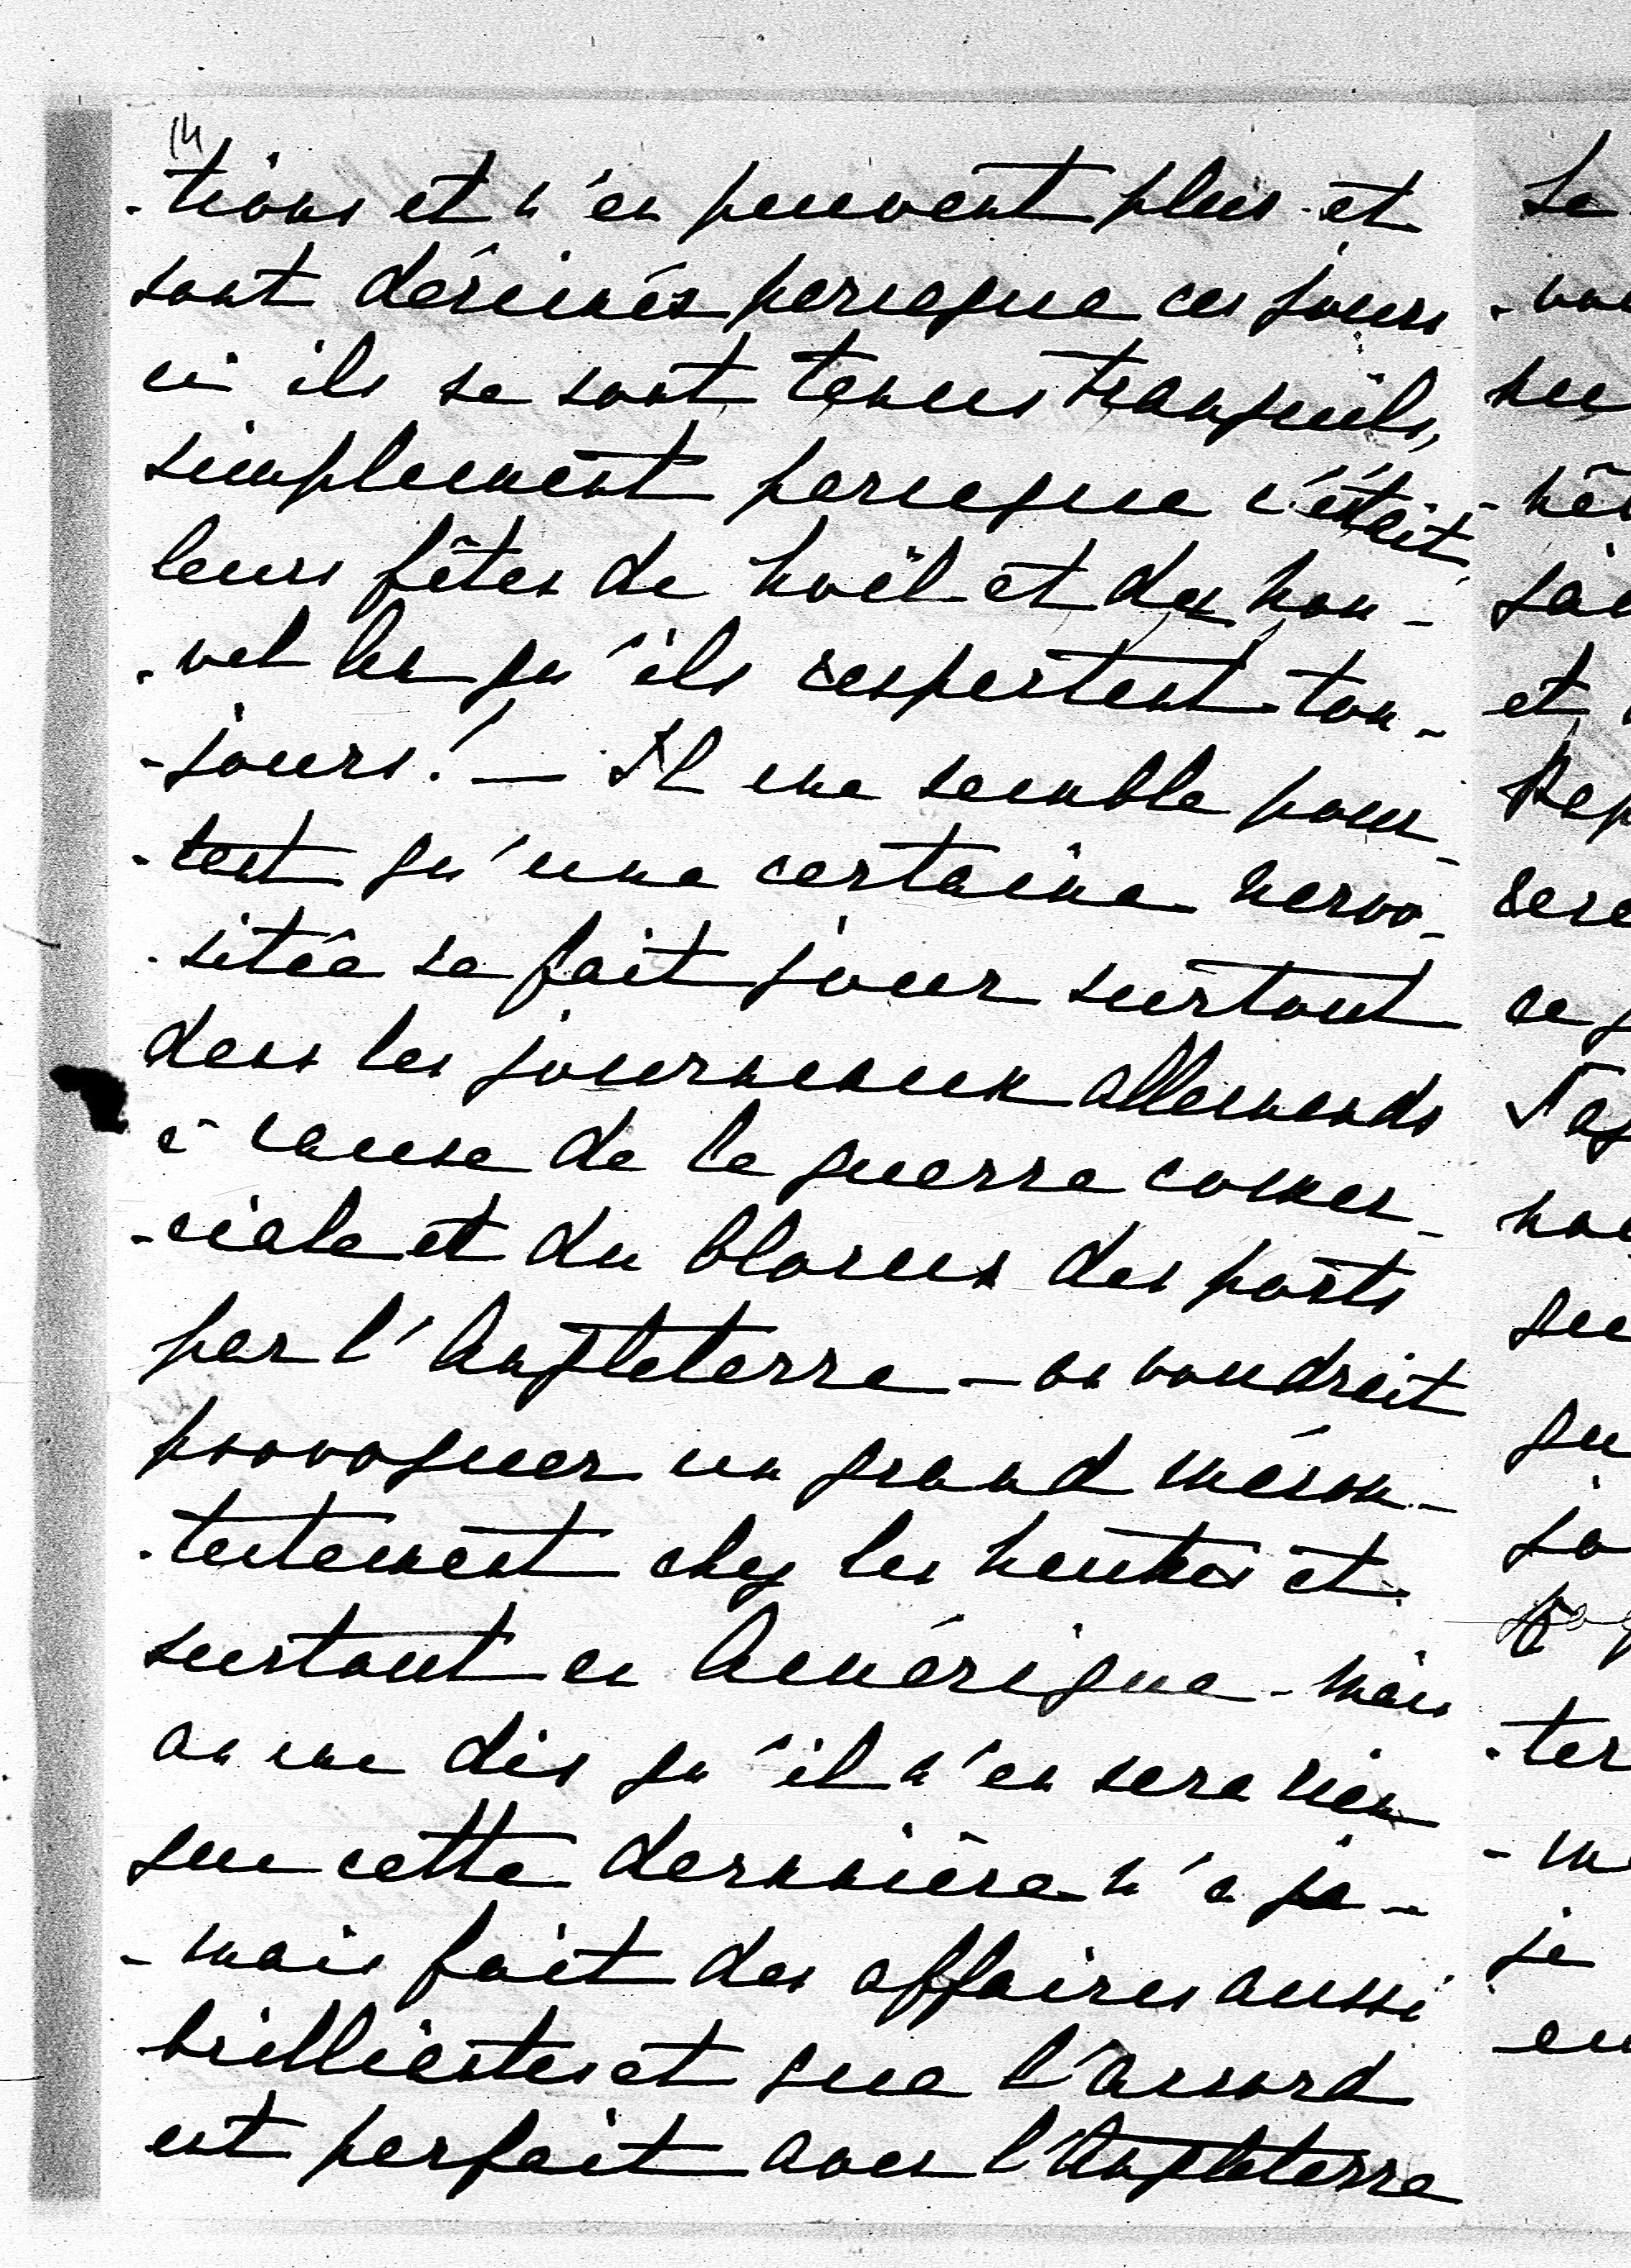 14
-tions et n'en peuvent plus et
sont décimés parceque ces jours
ci ils se sont tenus tranquils,
simplement parceque c'était
leurs fêtes de Noël et du Nou-
-vel An qu'ils respectent tou-
-jours! — Il me semble pour-
-tant qu'une certaine nervo-
-sitée se fait jour surtout
dans les journeaux allemands
à cause de la guerre comer-
-ciale et du blocus des ports
par l'Angleterre — on voudrait
provoquer un grand mécon-
-tentement chez les neutres et
surtout en Amérique - mais
on me dis qu'il n'en sera rien
que cette dernnière n'a ja-
-mais fait des affaires aussi
brilliantes et que l'accord
est parfait avec l'Angleterre